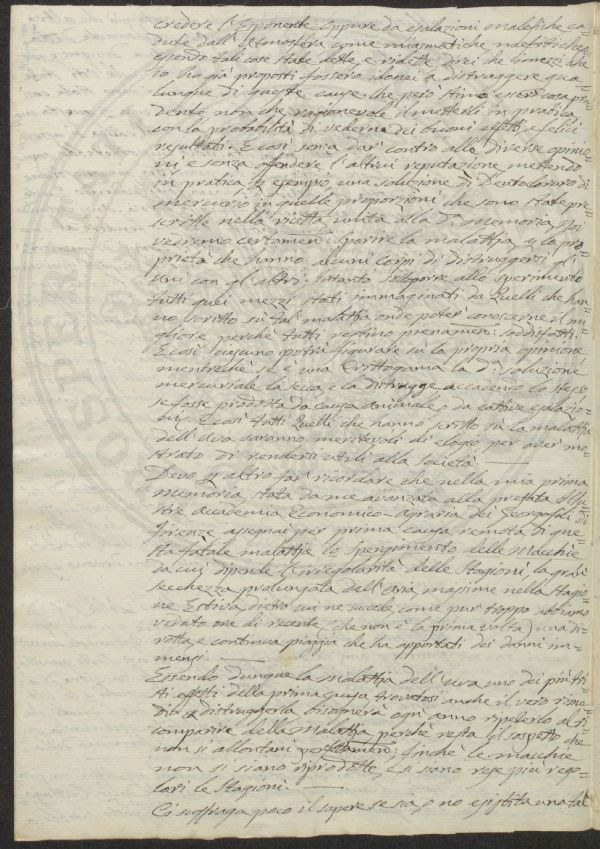 credere l'Esponente. Oppure da esalazioni malefiche ca=
dute dall'Atmosfera come miasmatiche mefitiche &
essendo tali cose state dette, e ridette dirò che i mezzi che
io ho già proposti fossero idonei a distruggere qua=
lunque di queste cause, che però stimo esser cosa pru=
dente non che ragionevole il metterli in pratica
con la probabilità di vederne dei buoni effetti, e felici
resultati. E così senza dar' contro alle diverse opinio=
ni, e senza offendere l'altrui reputazione mettendo
in pratica p. esempio una soluzione di Deutocloruro di
mercurio in quelle proporzioni che sono state pre=
scritte nella ricetta unita alla d.a memoria, Noi
vedremo certamen: sparire la malattia, p. la pro=
prietà che hanno alcuni corpi di distruggersi gl'
uni con gl'altri: Intanto sottoporre allo sperimento
tutti quei mezzi stati immaginati da Quelli che han=
no scritto su tal' malattia onde poter conoscerne il mi=
gliore perchè tutti restino pienamen: soddisfatti.
E così ciascuno potrà figurare su la propria opinione
mentreche se è una Crittogama la d.a soluzione
mercuriale la secca, e la distrugge, accadendo lo stesso
se fosse prodotta da causa animale, o da cattive esalazio=
ni. E così tutti Quelli che hanno scritto su la malattia
dell'Uva saranno meritevoli di elogio per aver mo=
strato di rendersi utili alla Società.
Devo p. altro far' ricordare che nella mia prima
memoria stata da me avanzata alla prefata Illu=
stre Accademia Economico-Agraria dei Georgofili di
Firenze, assegnai per prima causa remota di que=
sta fatale malattia lo spergimento delle Macchie
da cui dipende l'irregolarità delle Stagioni, la gran'
secchezza prolungata dell'Aria, massime nella Stagio=
ne Estiva, dietro cui ne succede, come pur troppo abbiamo
veduto ora di recente (che non è la prima volta) una di=
rotta, e continua pioggia che ha apportati dei danni im=
mensi.
Essendo dunque la malattia dell'uva uno dei più tri=
sti effetti della prima causa trovatosi anche il vero rime=
dio p. distruggerla bisognerà ogni anno ripeterlo al ri=
comparire della Malattia, perchè resta il sospetto che
non si allontani finchè le macchie
non si siano riprodotte, e si siano rese più rego=
lari le Stagioni.
Ci suffraga poco il sapere se sia, o no esistita una tal'